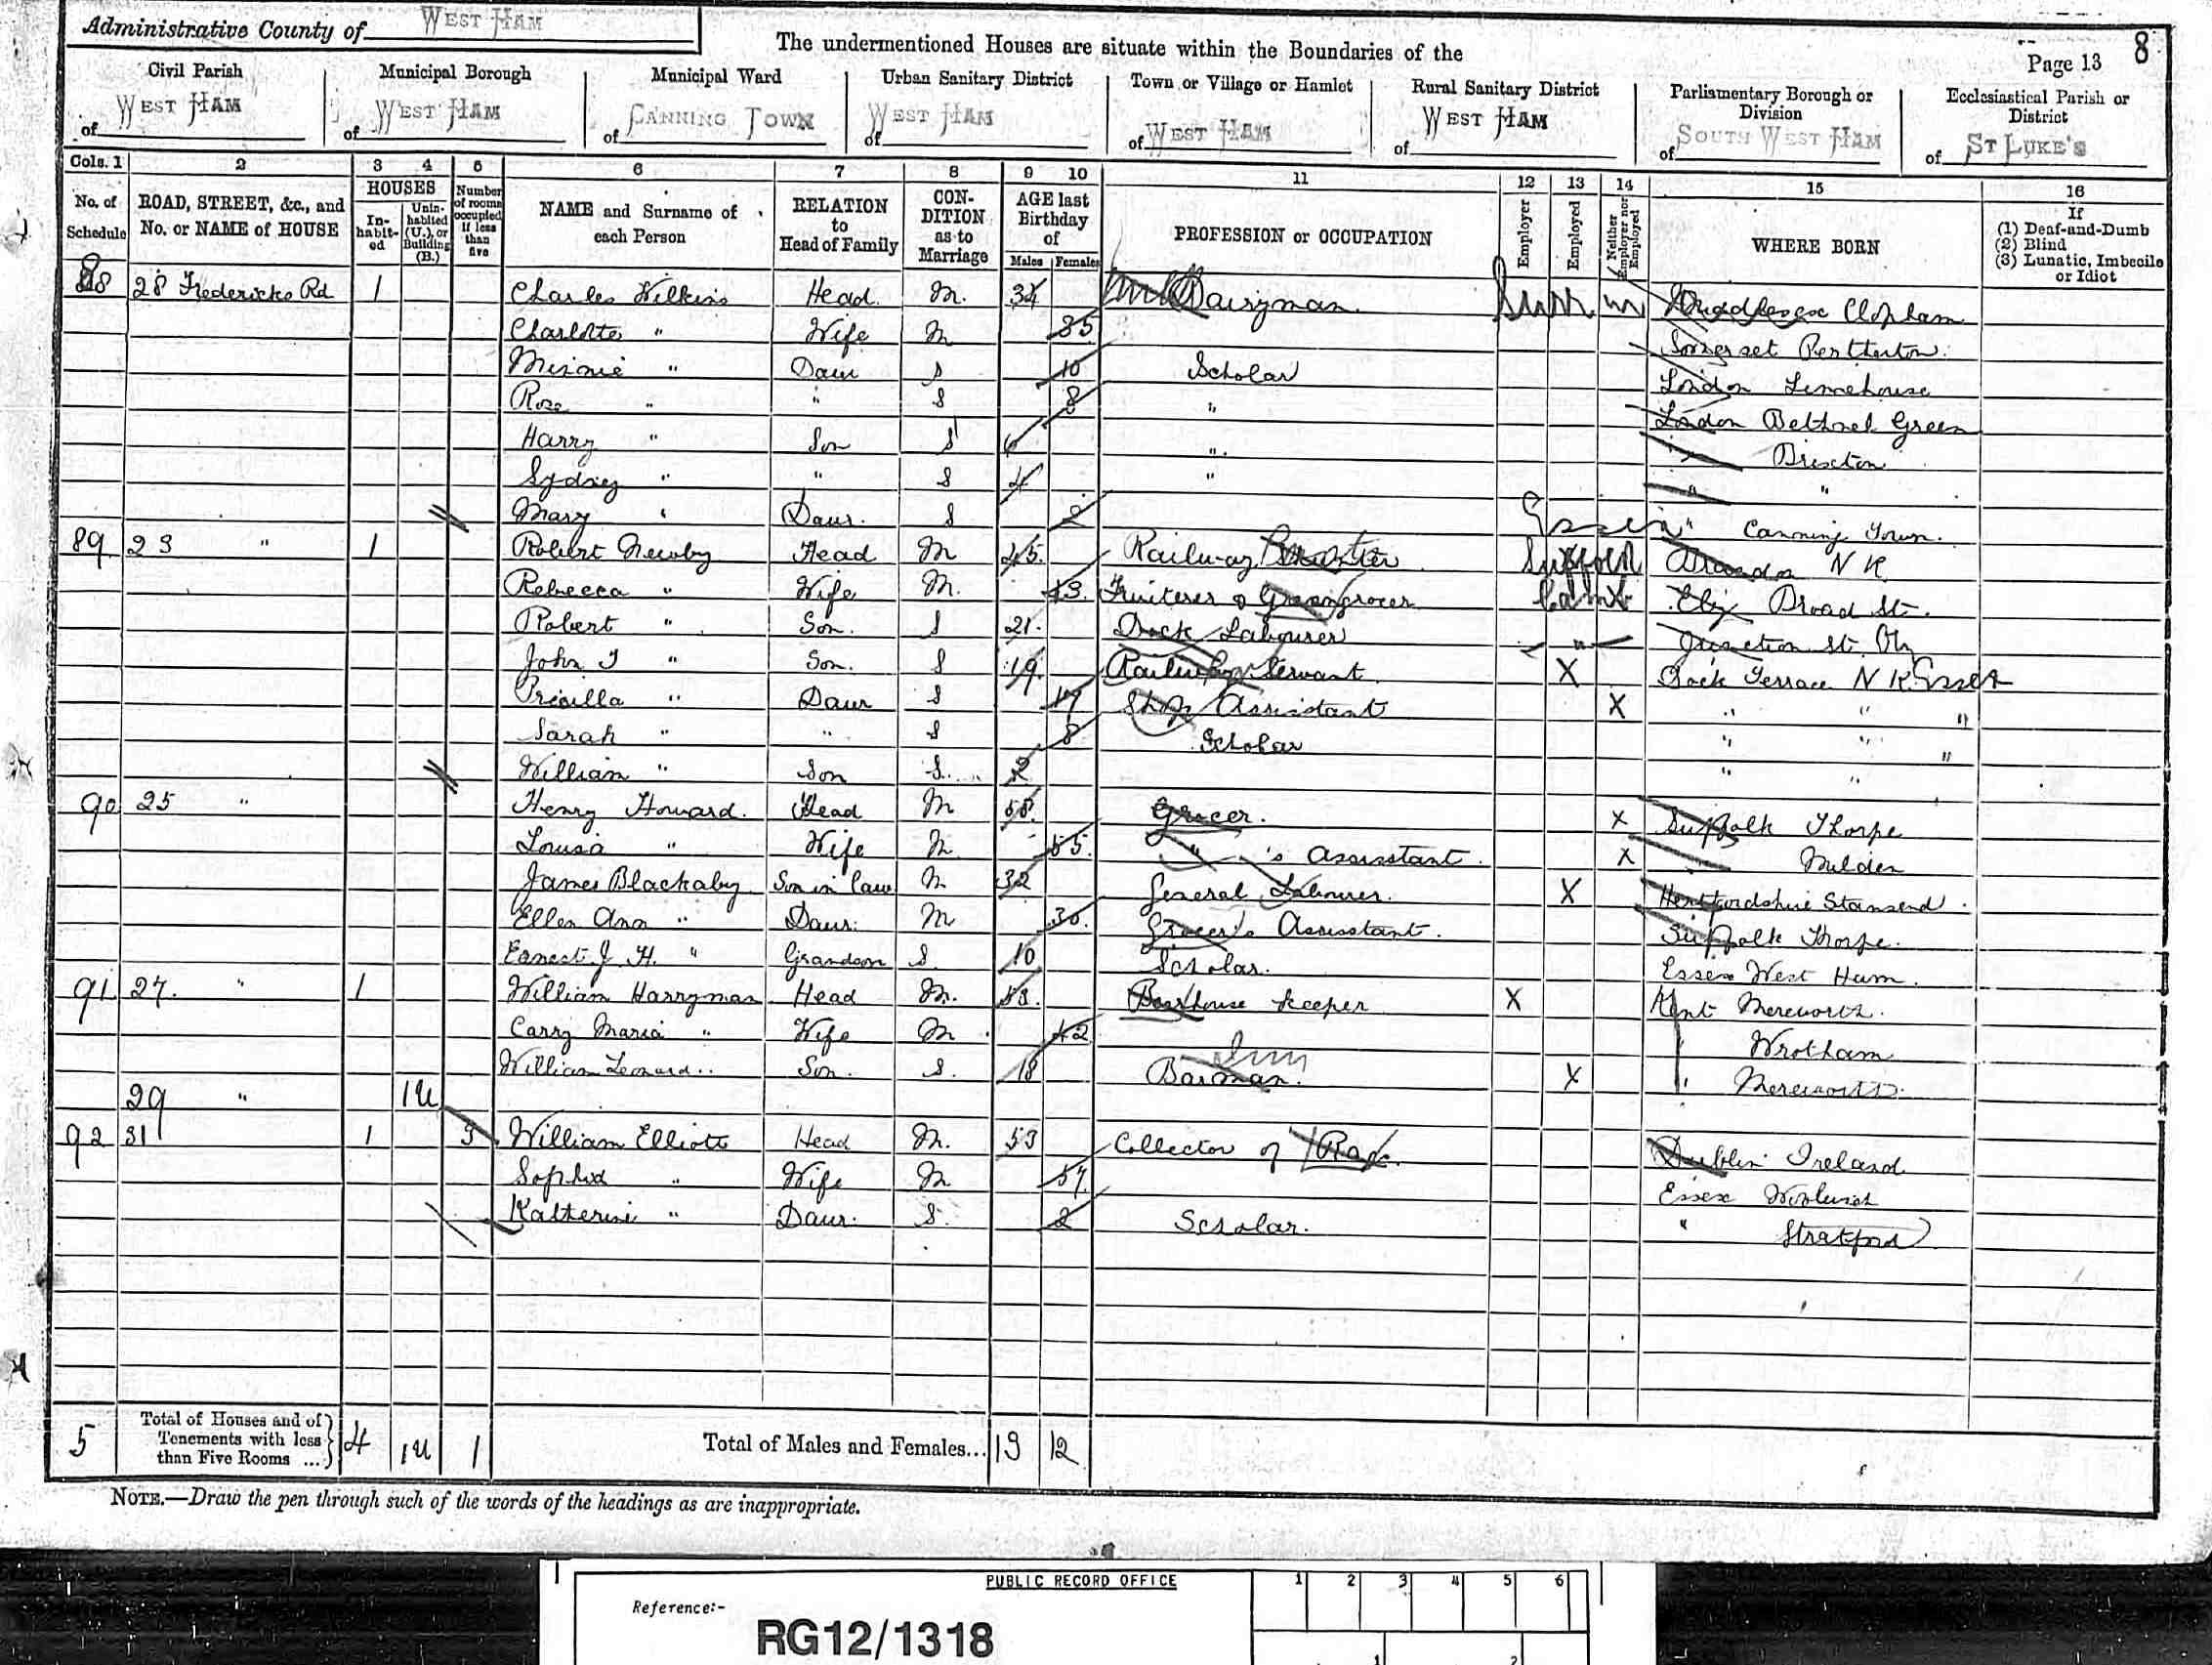 Administrative County of WEST HAM
The undermentioned Houses are situate within the Boundaries of the
Page 13 8
Civil Parish Municipal Borough Municipal Ward Urban Sanitary District Town or Village or Hamlet Rural Sanitary District Parliamentary Borough or Division Ecclesiastical Parish or District
of WEST HAM of WEST HAM of CANNING TOWN of WEST HAM of WEST HAM of WEST HAM of SOUTH WEST HAM of ST LUKE'S
Cols. 1 2 3 4 5 6 7 8 9 10 11 12 13 14 15 16
No. of Schedule ROAD, STREET, &c., and No. or NAME of HOUSE HOUSES Inhabited Uninhabited (U.), or Building (B.) Number of rooms occupied if less than five NAME and Surname of each Person RELATION to Head of Family CONDITION as to Marriage AGE last Birthday of Males Females PROFESSION or OCCUPATION Employer Employed Neither Employer nor Employed WHERE BORN If (1) Deaf-and-Dumb (2) Blind (3) Lunatic, Imbecile or Idiot
88 28 Fredericks Rd 1 Charles Wilkins Head M. 34 Dairyman Middlesex Clapham
Charlotte " Wife M 35 Somerset
Minnie " Daur S 10 Scholar London Limehouse
Rose " " S 8 " London Bethnel Green
Harry " Son S 6 " " Brixton
Sydney " " S 4 " " "
Mary " Daur. S 2 Essex " Canning Town.
89 23 " 1 Robert Newby Head M 45. Railway Suffolk N K
Rebecca " Wife M. 43. Fruiterer & Greengrocer Camb Ely Broad St.
Robert " Son. S 21. Dock Labourer " Junction St. Ely
John J " Son. S 19. Railway Servant X Dock Terrace N K Essex
Pricilla " Daur S 17 Shop Assistant X " " "
Sarah " " S 8 Scholar " " "
William " Son S. 2 " "
90 25 " Henry Howard. Head M 58. Grocer. X Suffolk Thorpe
Louisa " Wife M 55. " 's Assistant X Milden
James Blackaby Son in law M 32 General Labourer. X Hertfordshire Stansend.
Ellen Ann " Daur. M 30. Grocer's Assistant. Suffolk Thorpe.
Earnest J H. " Grandson S. 10 Scholar. Essex West Ham.
91 27. " 1 William Harryman Head M. 53. Beerhouse keeper X Kent Mereworth.
Carry Maria " Wife M. 42 Wrotham
William Leonard " Son. S. 18 Barman. X " Mereworth.
29 " 1U
92 31 1 3 William Elliott Head M. 53 Collector of Dublin Ireland
Sophia " Wife M 57 Essex Woolwich
Katherine " Daur. S. 2 Scholar. " Stratford
5 Total of Houses and of Tenements with less than Five Rooms ... 4 1U 1 Total of Males and Females... 13 12
NOTE.—Draw the pen through such of the words of the headings as are inappropriate.
PUBLIC RECORD OFFICE 1 2 3 4 5 6
Reference:-
RG12/1318
1 2